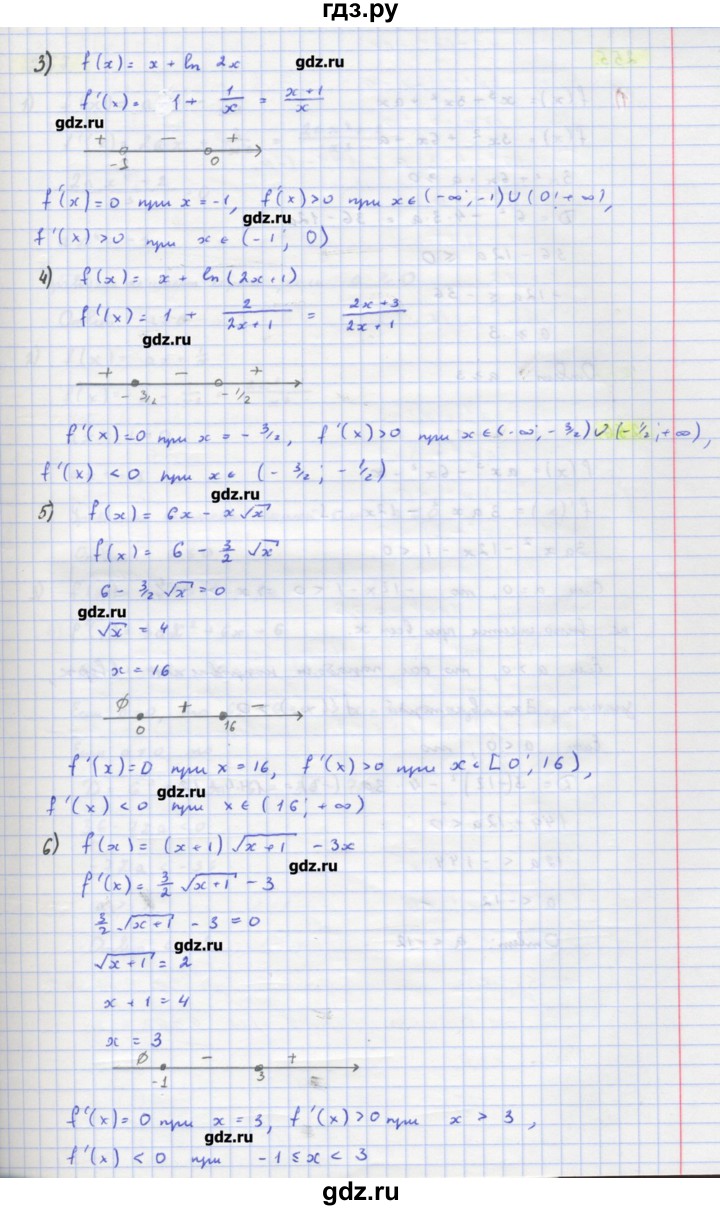 гдз.ру
3) f(x) = x + ln 2x
gdz.ru
f'(x) = 1 + 1/x = (x+1)/x
gdz.ru
+ - +
-1 0
f'(x) = 0 при x = -1, f'(x) > 0 при x ∈ (-∞; -1) ∪ (0; +∞),
gdz.ru
f'(x) > 0 при x ∈ (-1; 0)
4) f(x) = x + ln(2x+1)
f'(x) = 1 + 2/(2x+1) = (2x+3)/(2x+1)
gdz.ru
+ - +
-3/2 -1/2
f'(x) = 0 при x = -3/2, f'(x) > 0 при x ∈ (-∞; -3/2) ∪ (-1/2; +∞),
f'(x) < 0 при x ∈ (-3/2; -1/2)
gdz.ru
5) f(x) = 6x - x√x
f(x) = 6 - 3/2 √x
6 - 3/2 √x = 0
gdz.ru
√x = 4
x = 16
∅ + -
0 16
f'(x) = 0 при x = 16, f'(x) > 0 при x ∈ [0; 16),
gdz.ru
f'(x) < 0 при x ∈ (16; +∞)
6) f(x) = (x+1)√(x+1) - 3x
gdz.ru
f'(x) = 3/2 √(x+1) - 3
3/2 √(x+1) - 3 = 0
gdz.ru
√(x+1) = 2
x + 1 = 4
x = 3
gdz.ru
∅ - +
-1 3
f'(x) = 0 при x = 3, f'(x) > 0 при x > 3,
gdz.ru
f'(x) < 0 при -1 ≤ x < 3
gdz.ru